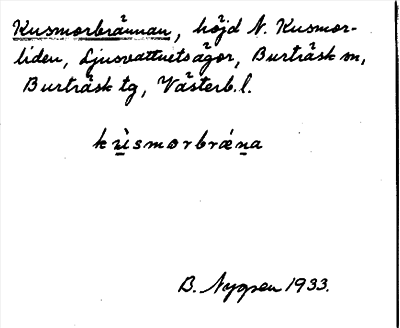 Kusmorbrännan, höjd N. Kusmor-
liden, Ljusvattnets ägor, Burträsk sn,
Burträsk tg, Västerb. l.
B. Nygren 1933.